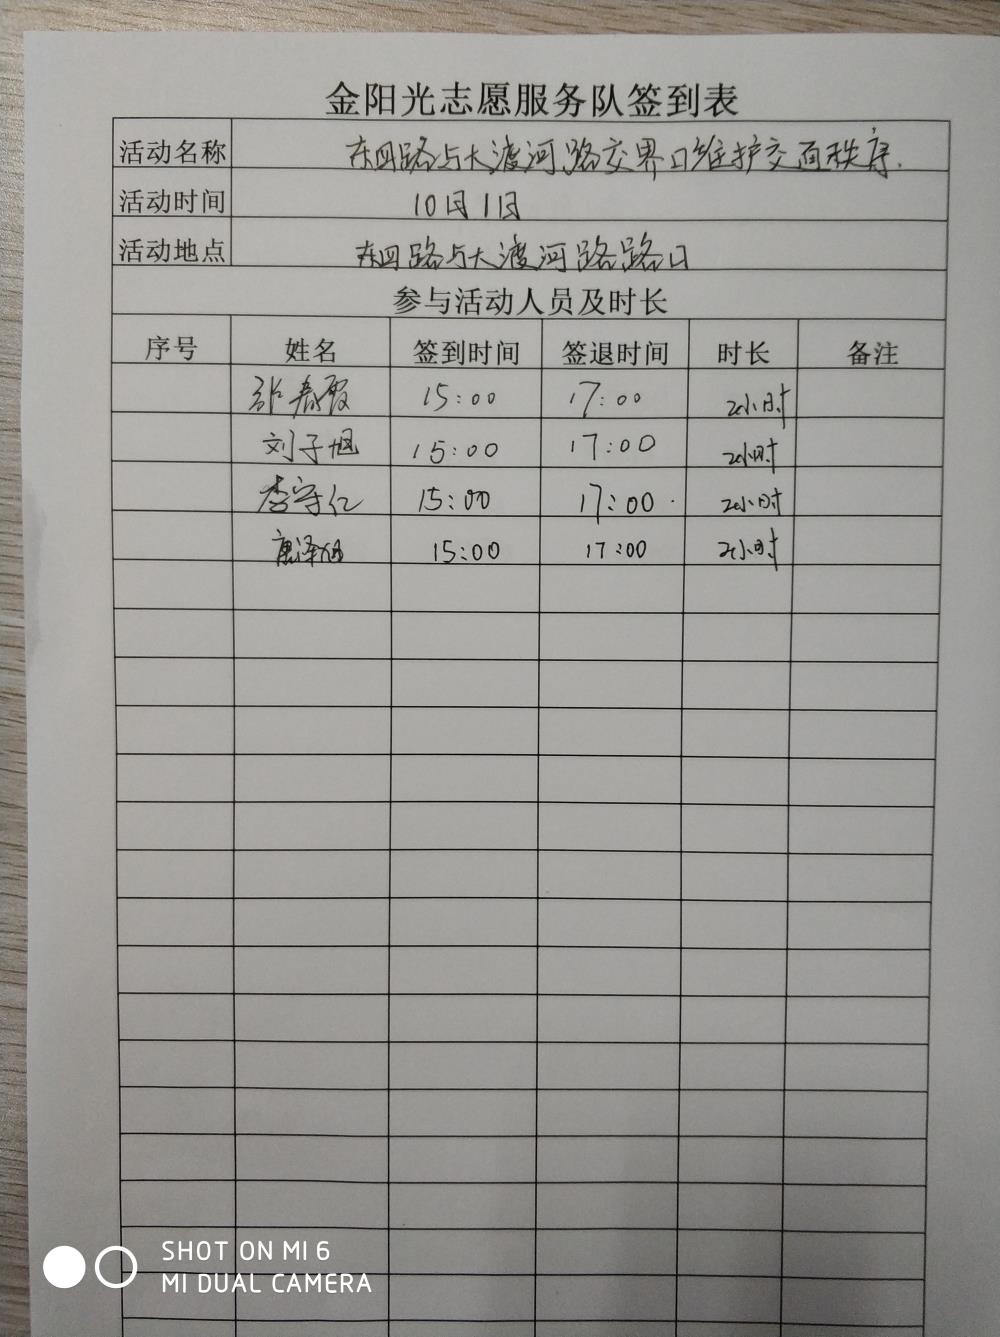 金阳光志愿服务队签到表
活动名称 东四路与大渡河路交界口维护交通秩序.
活动时间 10月1日
活动地点 东四路与大渡河路路口
参与活动人员及时长
序号 姓名 签到时间 签退时间 时长 备注
张春霞 15:00 17:00 2小时
刘子旭 15:00 17:00 2小时
李守仁 15:00 17:00 2小时
唐泽旭 15:00 17:00 2小时
SHOT ON MI 6
MI DUAL CAMERA